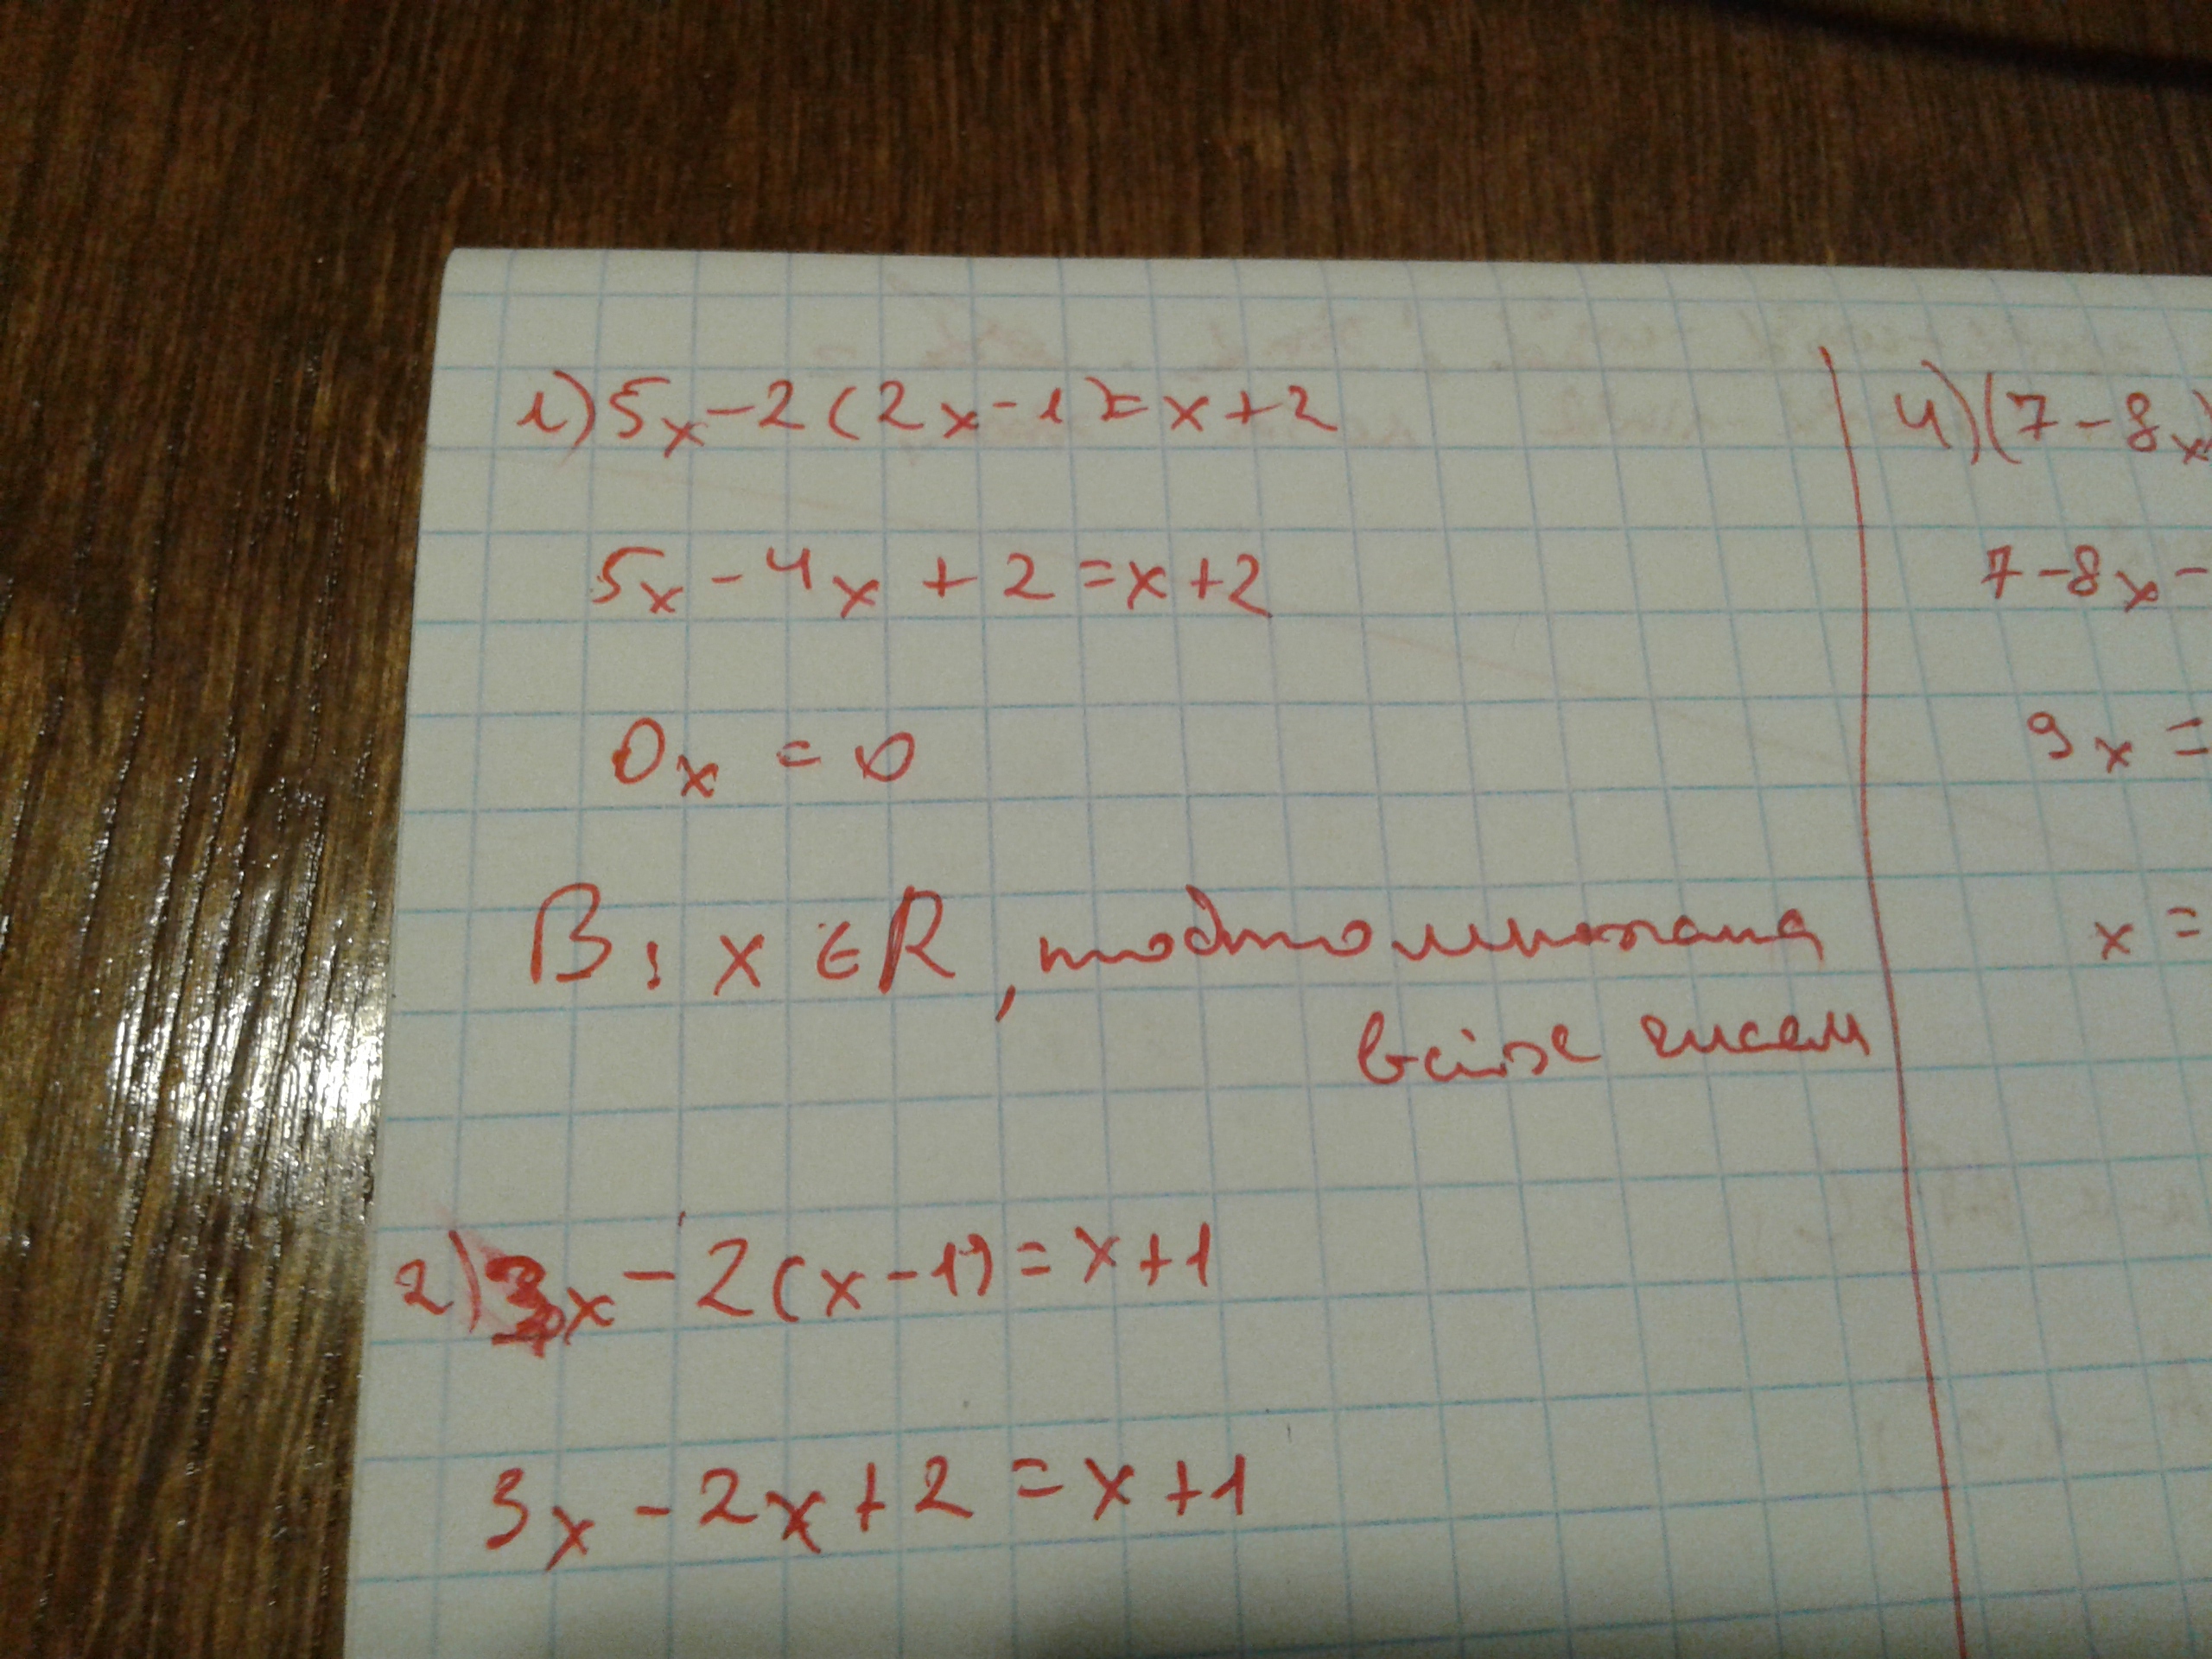 1) 5x - 2(2x - 1) = x + 2
5x - 4x + 2 = x + 2
0x = 0
В: x ∈ R, тобто множина
всіх чисел
2) 3x - 2(x - 1) = x + 1
3x - 2x + 2 = x + 1
4) (7 - 8x)
7 - 8x -
9x =
x =